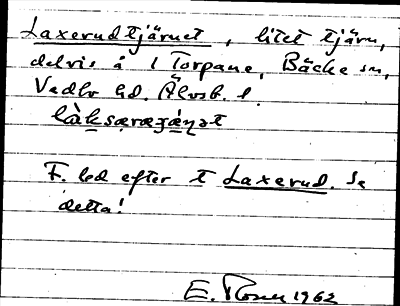 Laxerudtjärnet, litet tjärn,
delvis å 1 Torpane, Bäcke sn,
Vedbo hd. Älvsb. l.
F. led efter t Laxerud. Se
detta!
E. Rosen 1962